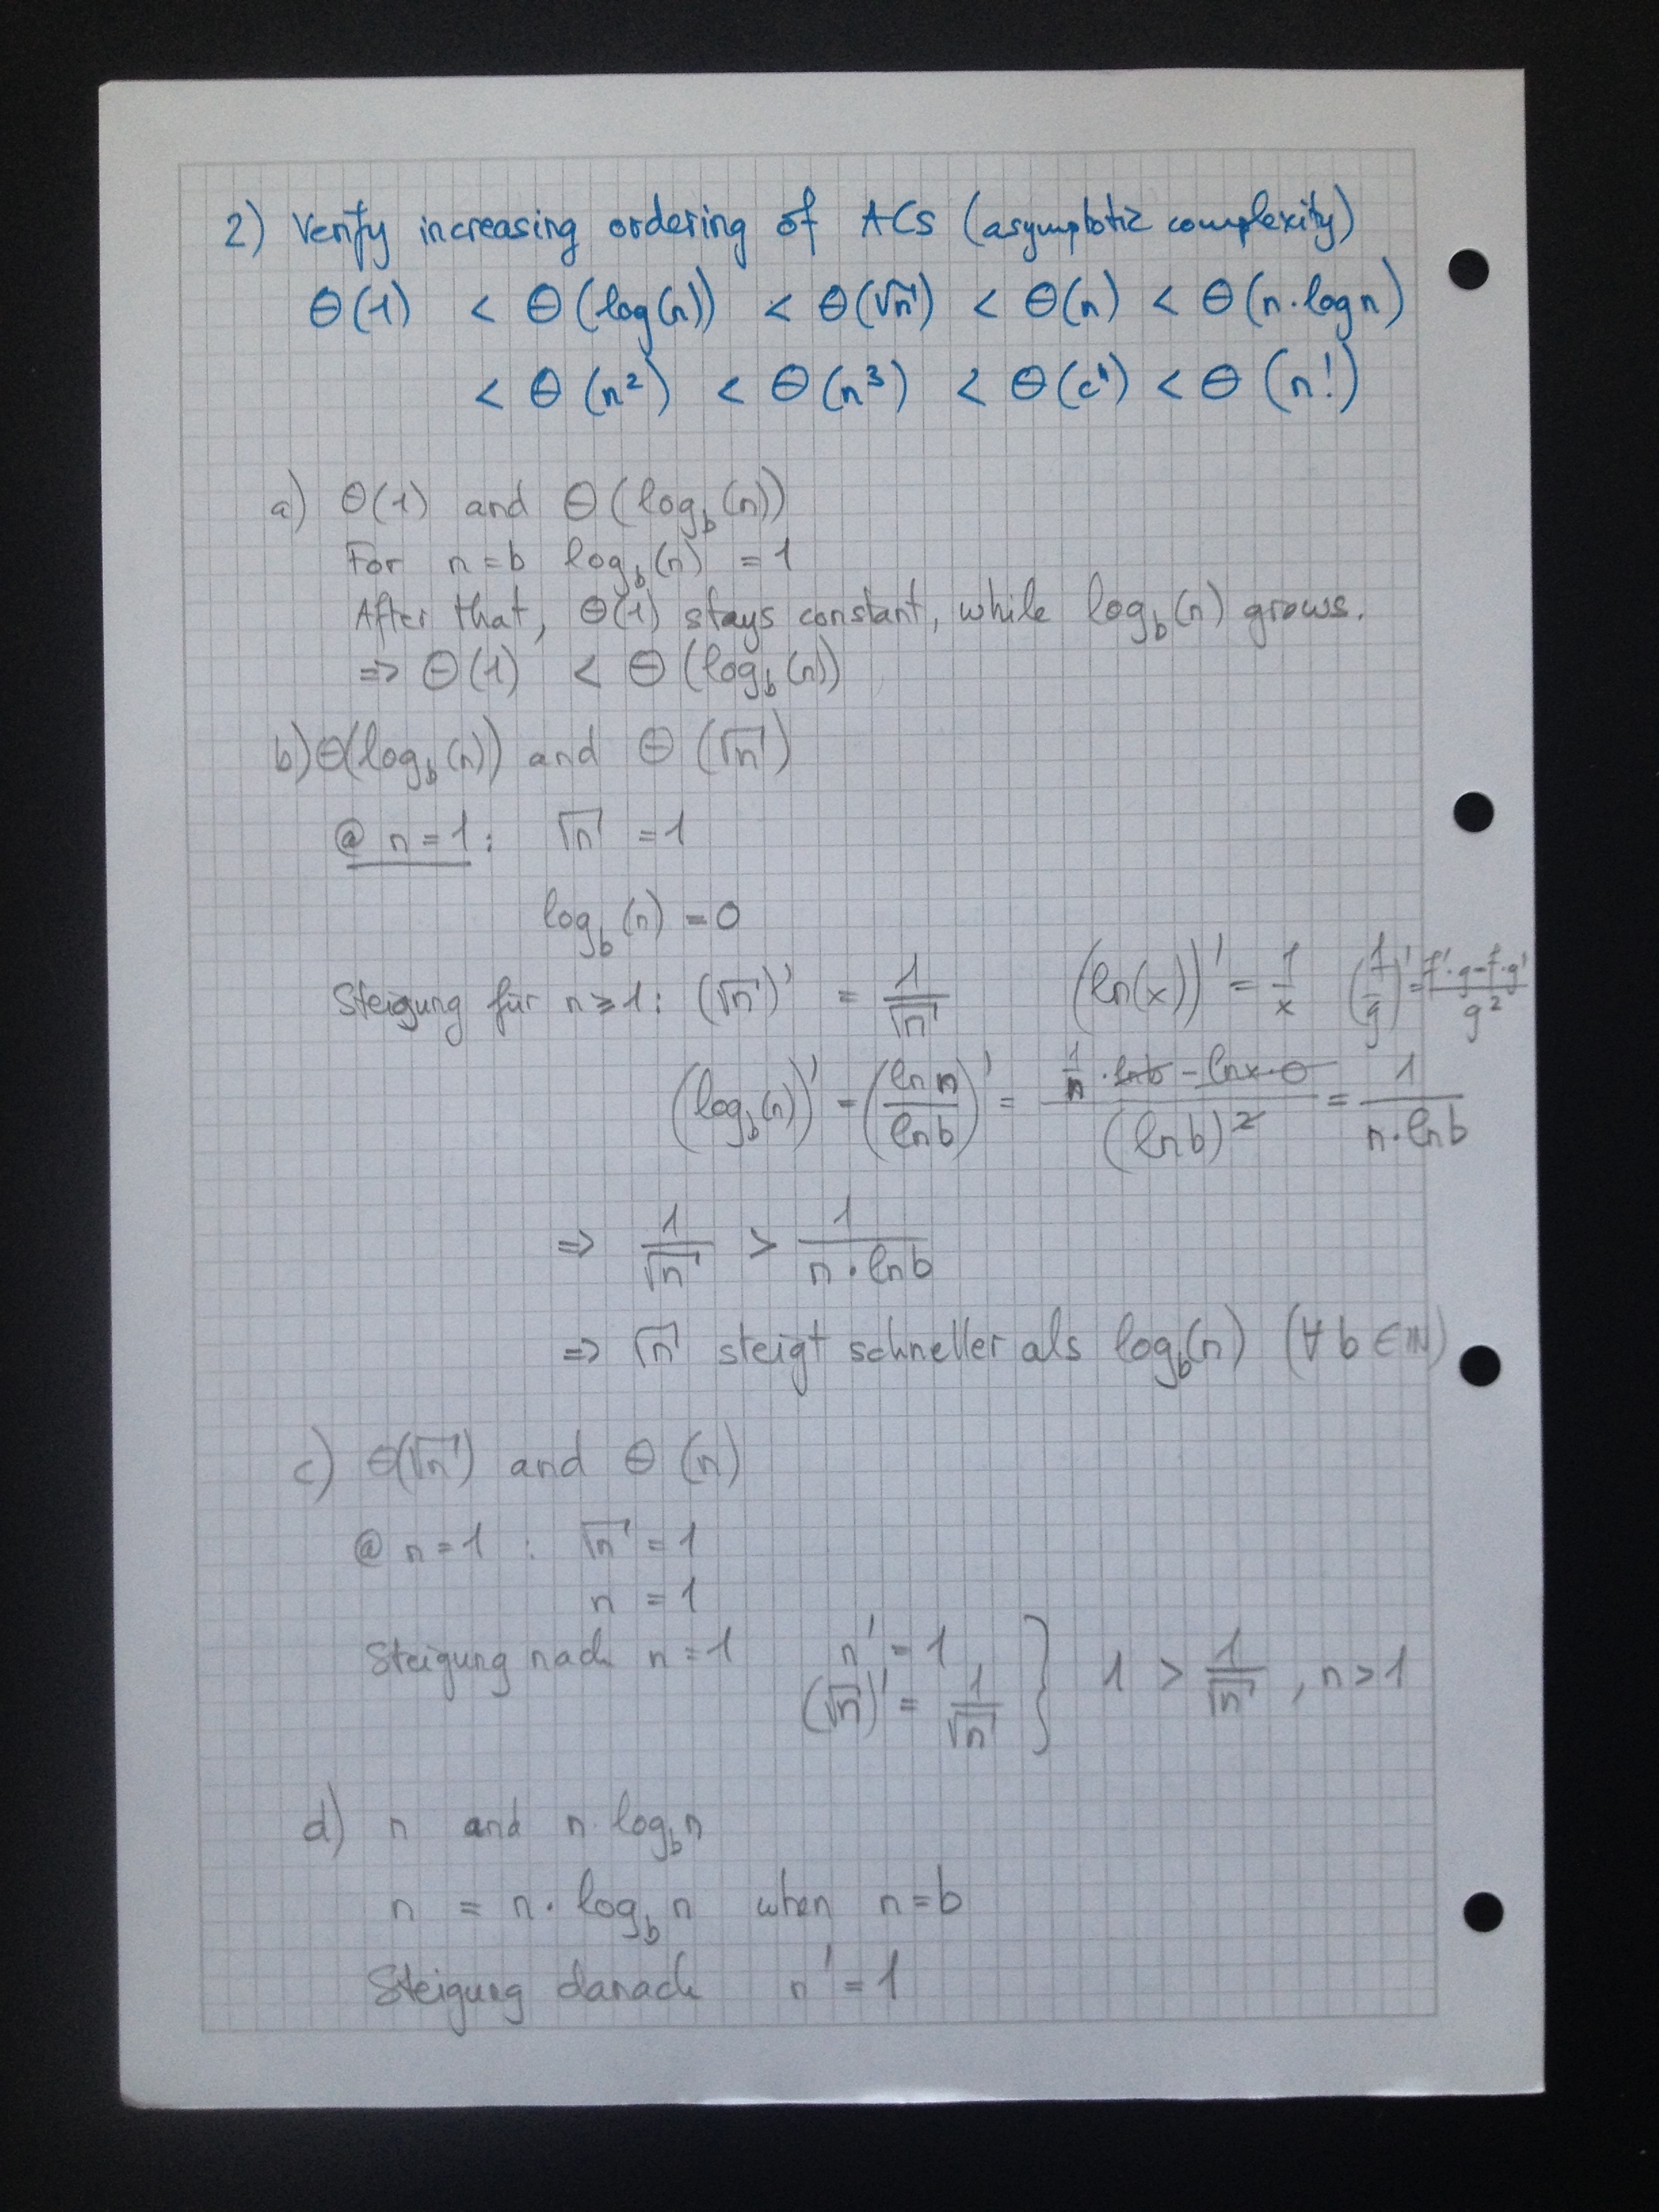 2) Verify increasing ordering of ACs (asymptotic complexity)
Θ(1) < Θ(log(n)) < Θ(√n) < Θ(n) < Θ(n·log n)
< Θ(n²) < Θ(n³) < Θ(cⁿ) < Θ(n!)
a) Θ(1) and Θ(log_b(n))
For n=b log_b(n) = 1
After that, Θ(1) stays constant, while log_b(n) grows.
⇒ Θ(1) < Θ(log_b(n))
b) Θ(log_b(n)) and Θ(√n)
@ n=1: √n = 1
log_b(n) = 0
Steigung für n≥1: (√n)' = 1/√n (ln(x))' = 1/x (f/g)' = (f'·g-f·g')/g²
(log_b(n))' = (ln n/ln b)' = (1/n · ln b - ln x · 0)/(ln b)² = 1/(n·ln b)
⇒ 1/√n > 1/(n·ln b)
⇒ √n steigt schneller als log_b(n) (∀ b ∈ ℕ)
c) Θ(√n) and Θ(n)
@ n=1 : √n = 1
n = 1
Steigung nach n=1 n' = 1
(√n)' = 1/√n } 1 > 1/√n , n>1
d) n and n·log_b n
n = n·log_b n when n=b
Steigung danach n' = 1